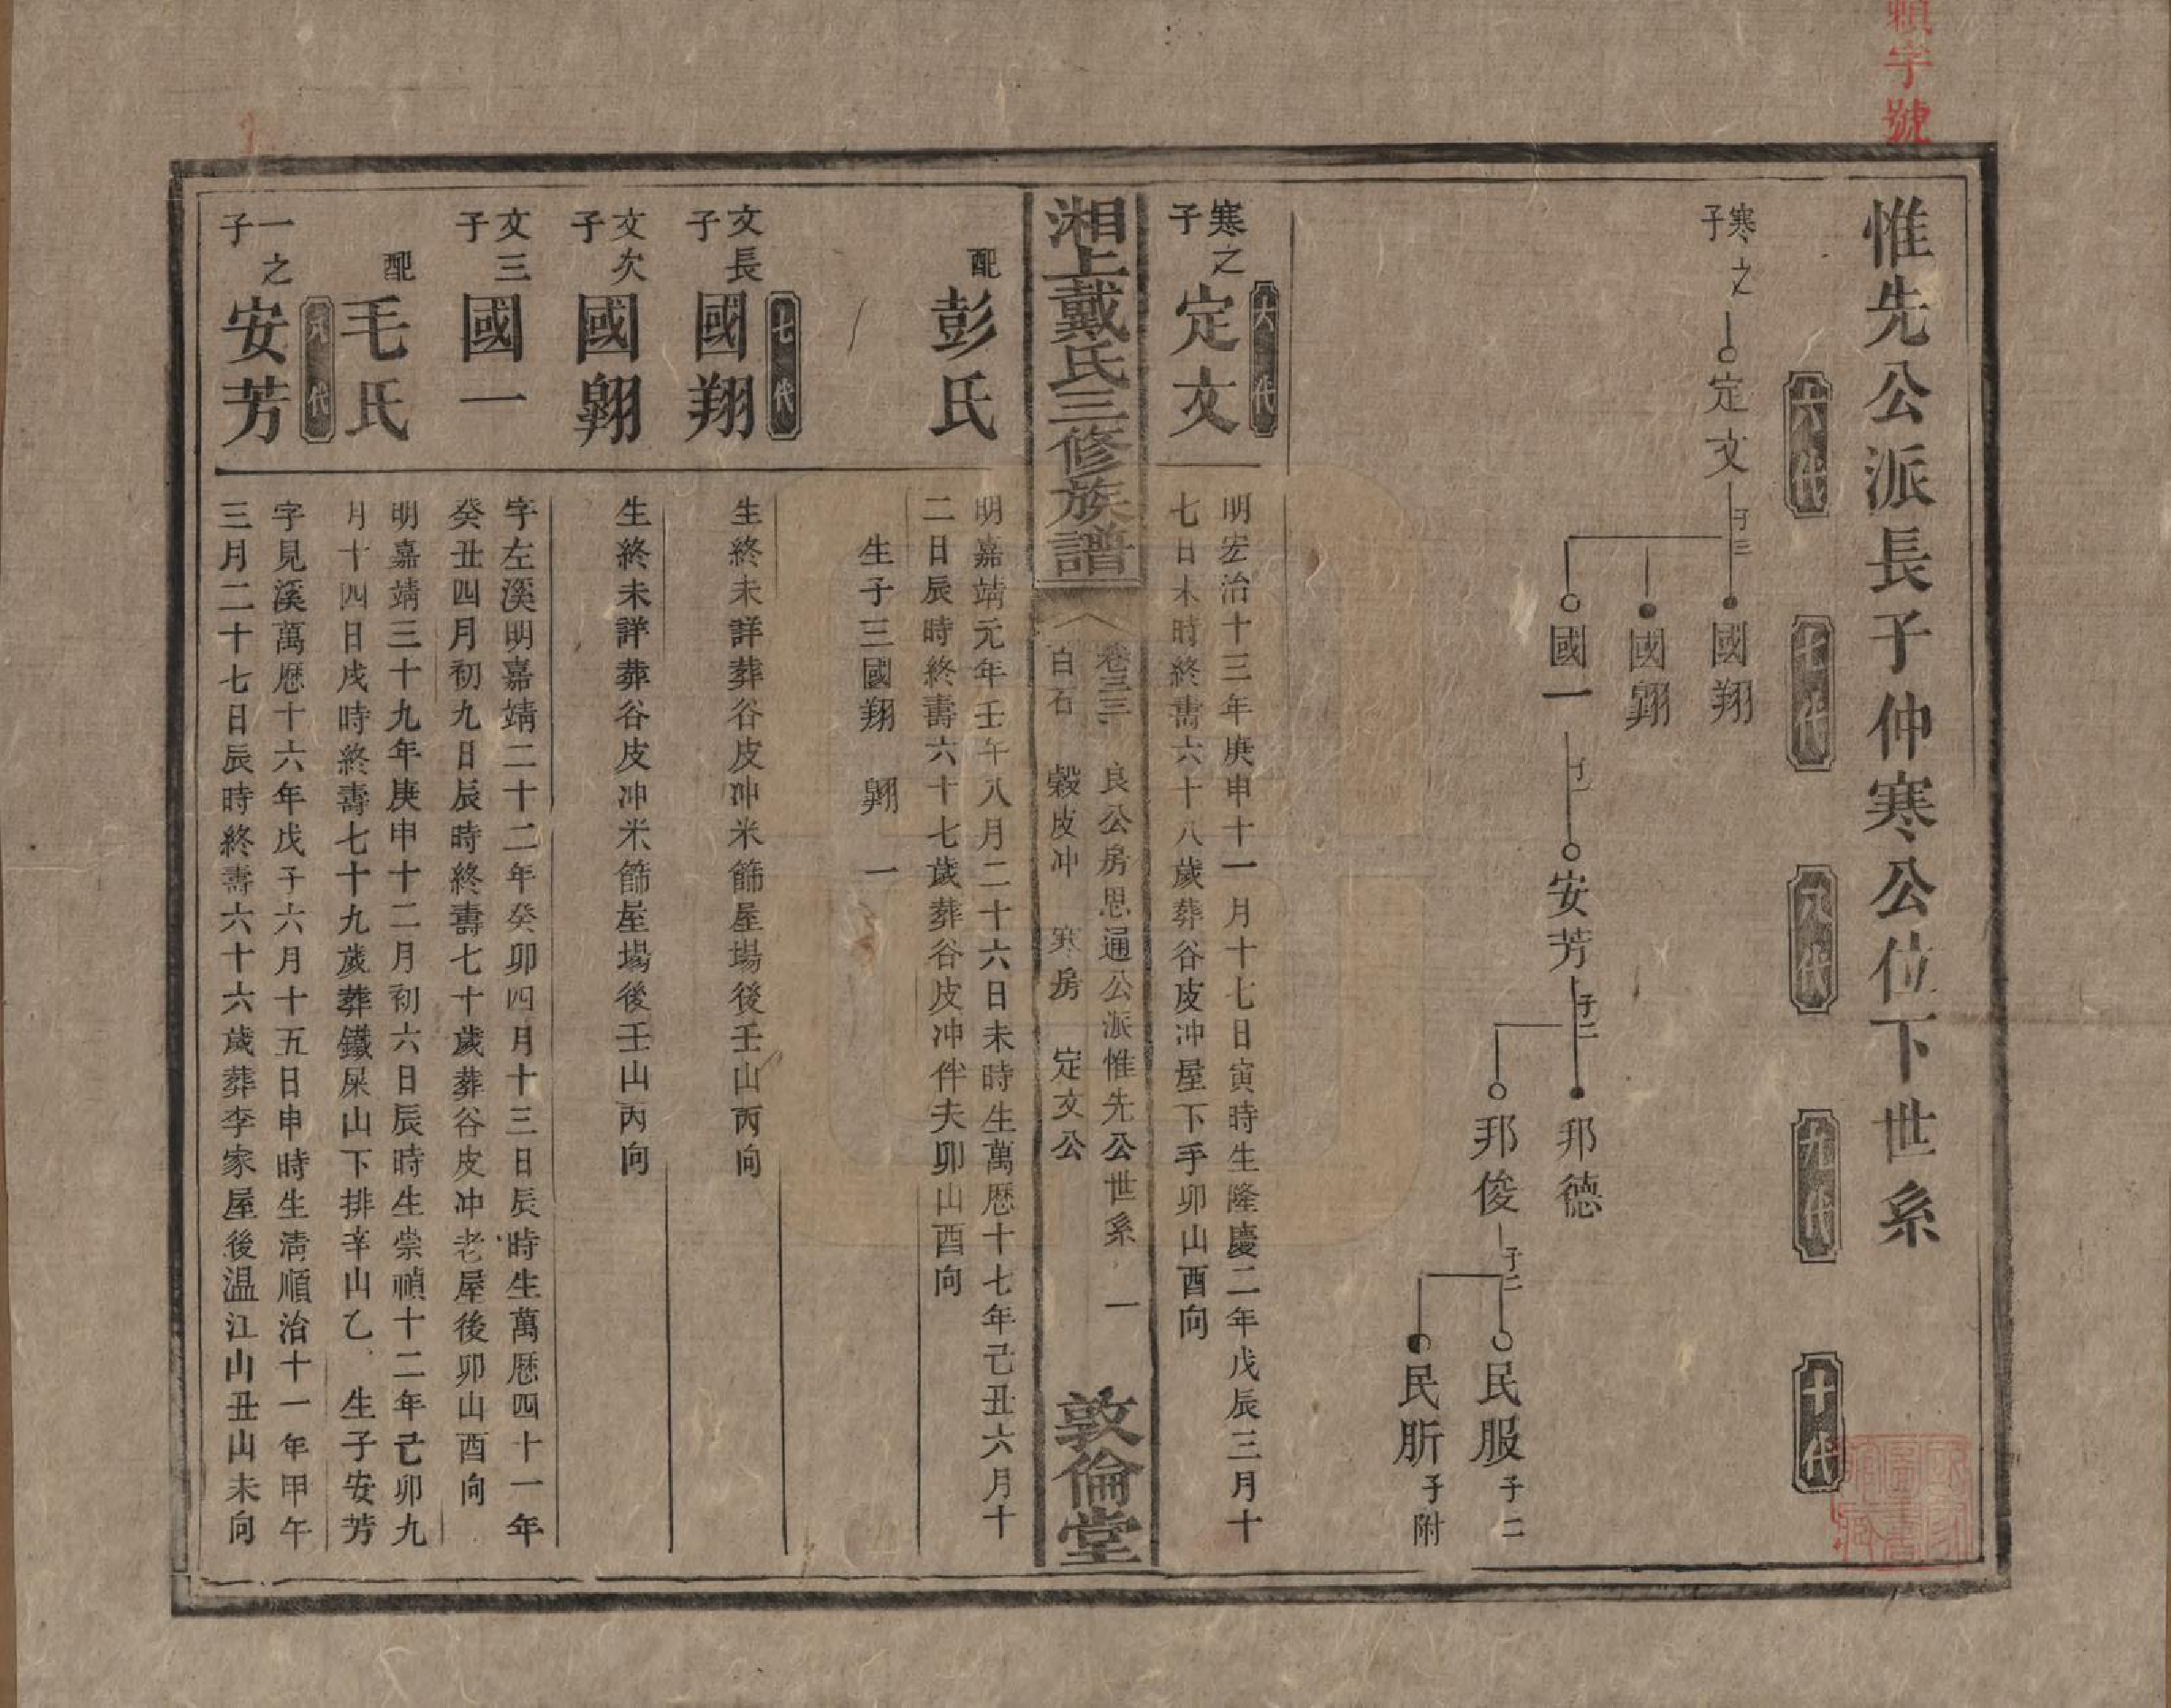 賴字號
惟先公派長子仲寒公位下世系
六代
七代
八代
九代
十代
寒之子
定文
子三
國翔
國翶
國一
子一
安芳
子二
邦德
邦俊
子二
民服 子二
民肵 子附
六代
寒之子 定文
明宏治十三年庚申十一月十七日寅時生隆慶二年戊辰三月十
七日未時終壽六十八歲葬谷皮冲屋下手卯山酉向
湘上戴氏三修族譜
卷三三 良公房思通公派惟先公世系 一
白石 榖皮冲 寒房 定文公
敦倫堂
配 彭氏
明嘉靖元年壬午八月二十六日未時生萬歷十七年己丑六月十
二日辰時終壽六十七歲葬谷皮冲伴夫卯山酉向
生子三國翔 翶 一
七代
文長子 國翔
生終未詳葬谷皮冲米篩屋場後壬山丙向
文次子 國翶
生終未詳葬谷皮冲米篩屋場後壬山丙向
文三子 國一
字左溪明嘉靖二十二年癸卯四月十三日辰時生萬歷四十一年
癸丑四月初九日辰時終壽七十歲葬谷皮冲老屋後卯山酉向
配 毛氏
明嘉靖三十九年庚申十二月初六日辰時生崇禎十二年己卯九
月十四日戌時終壽七十九歲葬鐵屎山下排辛山乙 生子安芳
八代
一之子 安芳
字見溪萬歷十六年戊子六月十五日申時生淸順治十一年甲午
三月二十七日辰時終壽六十六歲葬李家屋後温江山丑山未向